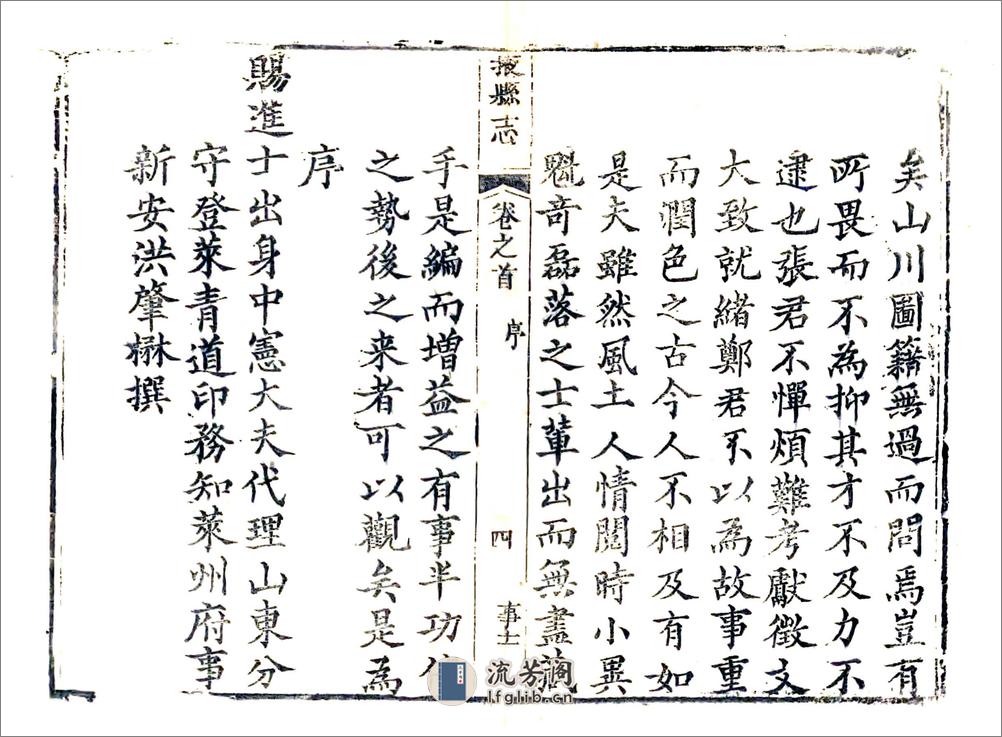 矣山川圖籍無過而問焉豈有
所畏而不為抑其才不及力不
逮也張君不憚煩難考獻徵文
大致就緒鄭君不以為故事重
而潤色之古今人不相及有如
是夫雖然風土人情閱時小異
魁奇磊落之士輩出而無盡
掖縣志
卷之首
序
四
手是編而增益之有事半功
之勢後之来者可以觀矣是為
序
賜進士出身中憲大夫代理山東分
守登萊青道印務知萊州府事
新安洪肇楙撰
流芳閣
lfglib.cn